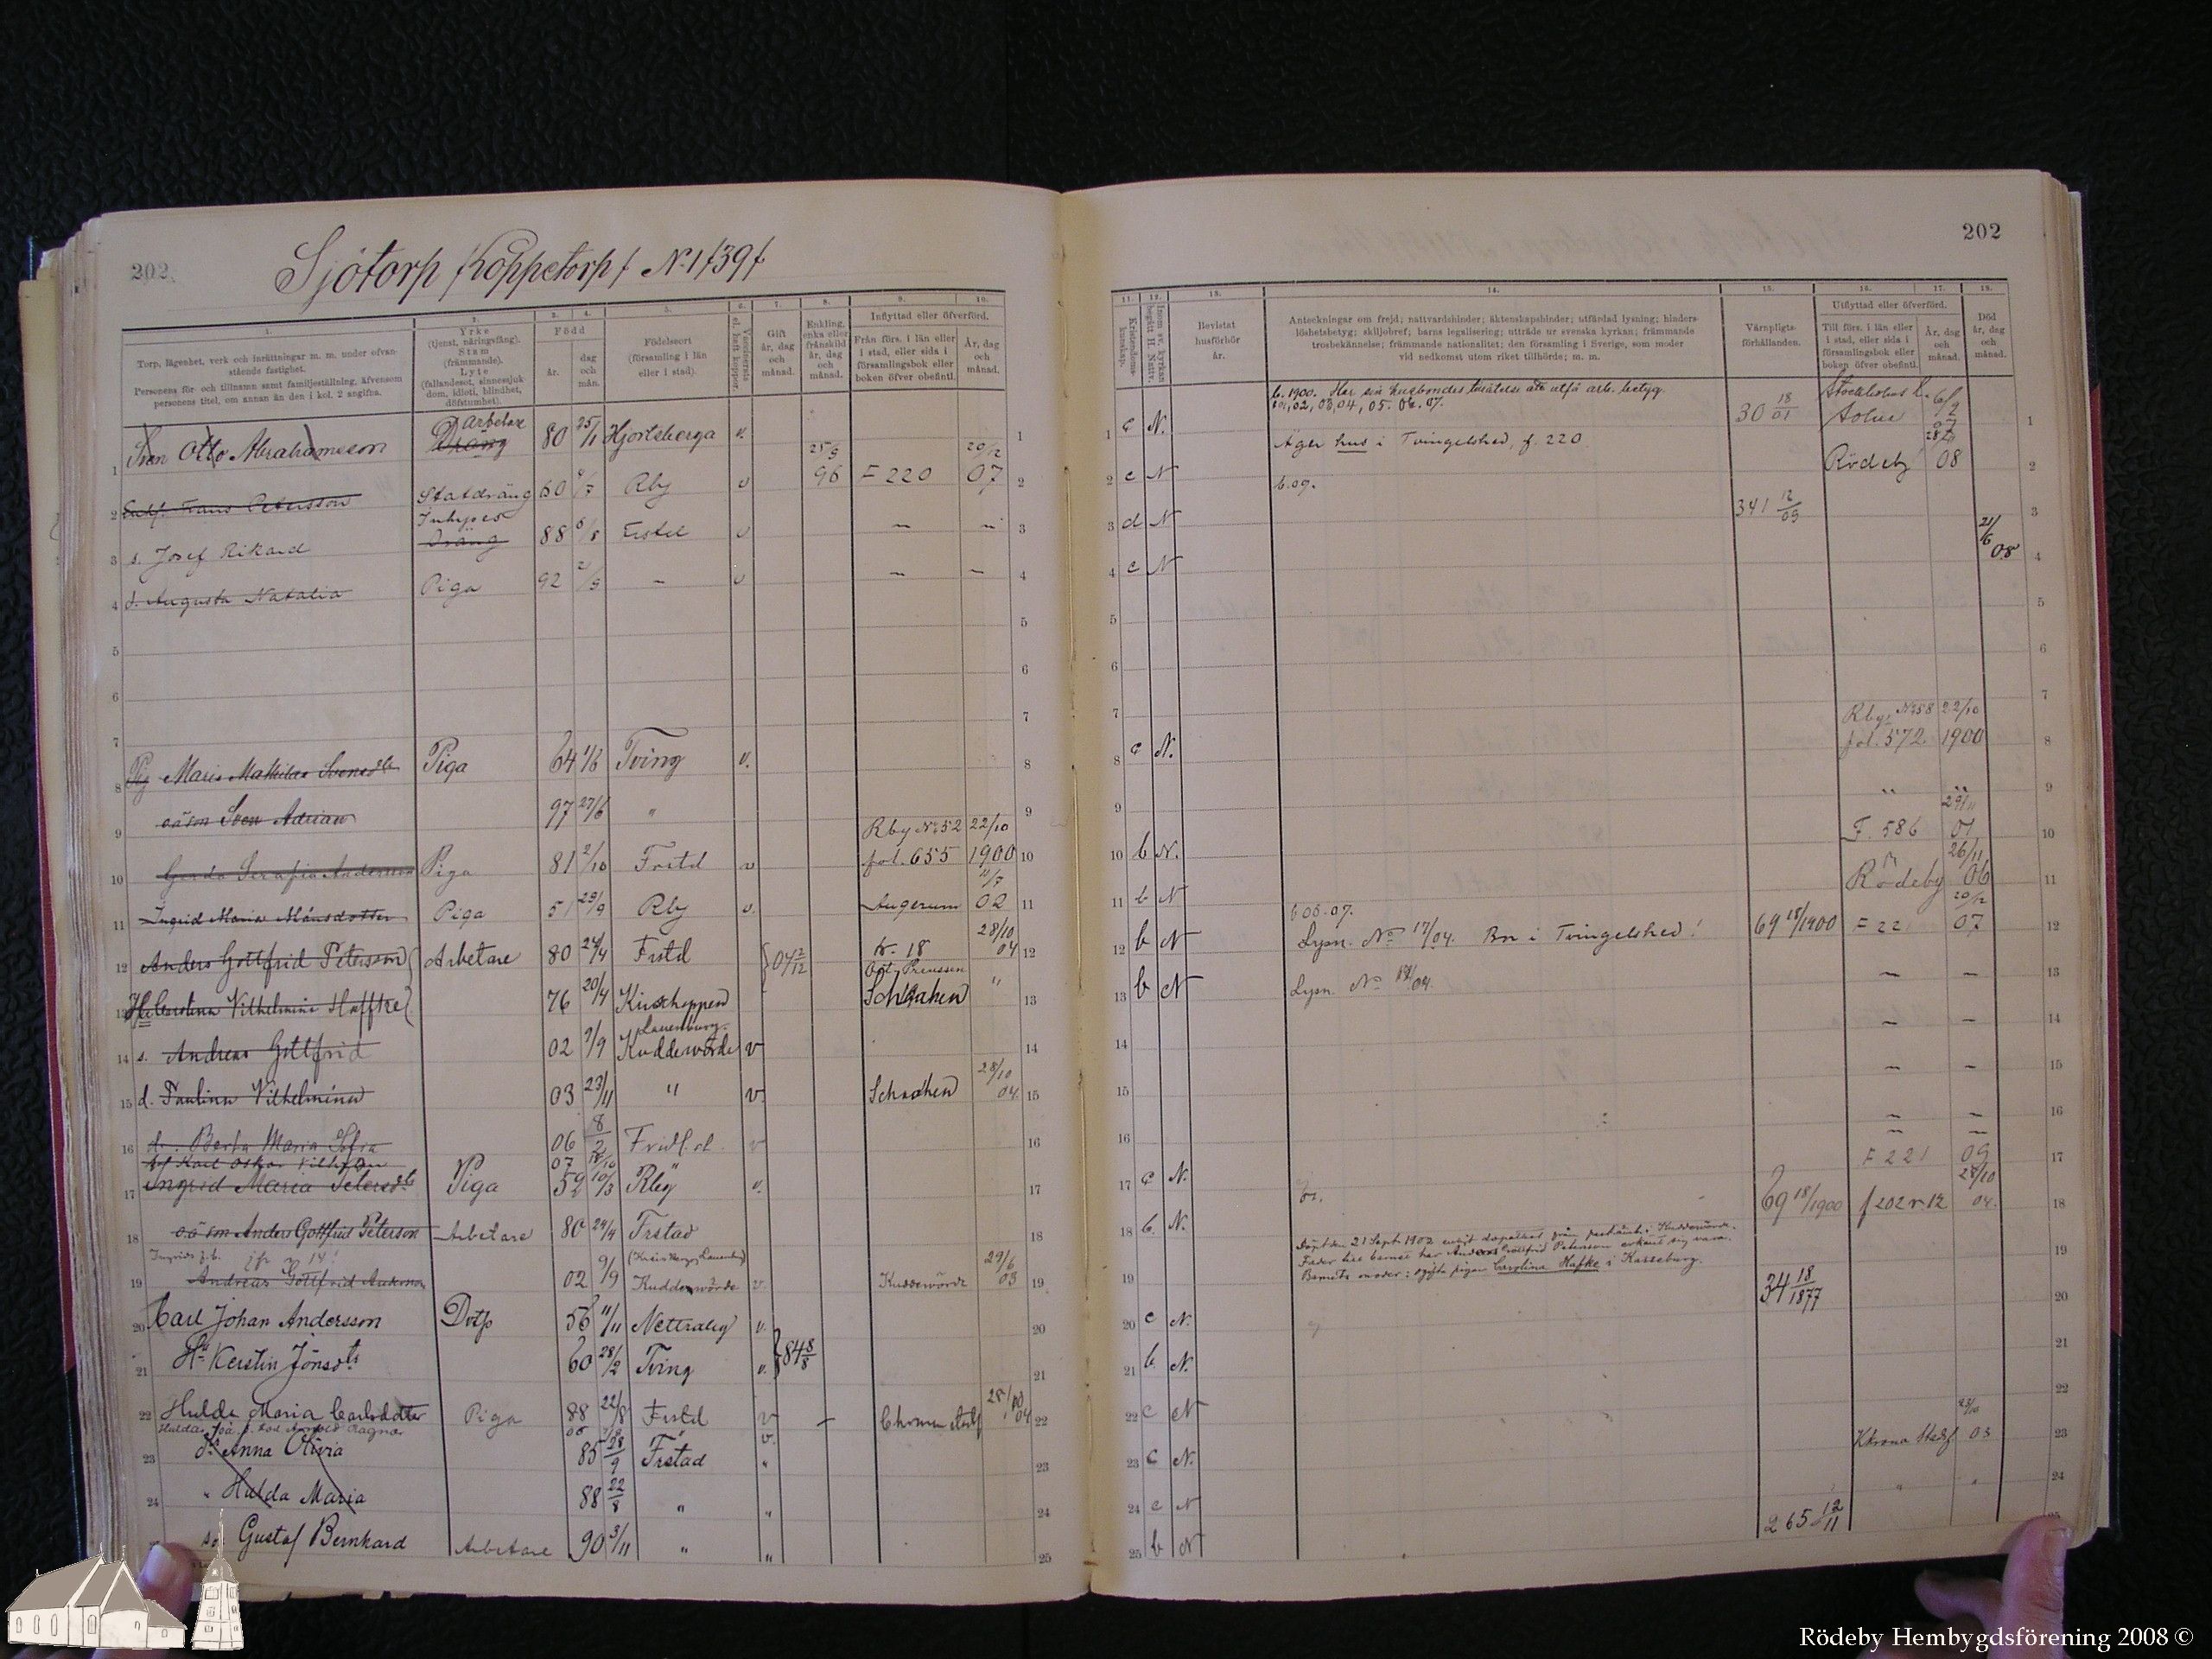 202.
Sjötorp /Köppetorp/ No 1 /39/
1. 2. 3. 4. 5. 6. 7. 8. 9. 10.
Torp, lägenhet, verk och inrättningar m. m. under ofvanstående fastighet.
Personens för- och tillnamn samt familjeställning, äfvensom personens titel, om annan än den i kol. 2 angifna.
Yrke (tjenst, näringsfång). Stam (främmande). Lyte (fallandesot, sinnessjukdom, idioti, blindhet, döfstumhet).
Född
år. dag och mån.
Födelseort (församling i län eller i stad).
Vaccinerats el. haft koppor.
Gift år, dag och månad.
Enkling, enka eller frånskild år, dag och månad.
Inflyttad eller öfverförd.
Från förs. i län eller i stad, eller sida i församlingsbok eller boken öfver obefintl.
År, dag och månad.
1 Sven Otto Abrahamsson Arbetare Dräng 80 25/1 Hjortsberga v.
2 Enkl. Frans Petersson Statdräng 60 Rby v 25/9 96 F 220 20/12 07
3 s. Josef Rikard Inhyses Dräng 88 Fristd v – –
4 d. Augusta Natalia Piga 92 – v – –
5
6
7
8 Pig Maria Mathilda Svensdtr Piga 64 1/6 Tving v.
9 oä son Sven Adrian 97 27/6 "
10 Gerda Serafia Andersson Piga 81 2/10 Fristd v Rby No 52 fol. 655 22/10 1900
11 Ingrid Maria Månsdotter Piga 51 29/9 Rby v. Augerum 11/7 02
12 Anders Gottfrid Petersson Arbetare 80 24/4 Fristd 04 2/12 18 28/10 04
13 H. Carolina Vilhelmina Haffke 76 20/4 Kinscheppen Ost Preussen Schaaken "
14 s. Andreas Gottfrid 02 9/9 Lauenburg. Kuddewörde v
15 d. Paulina Vilhelmina 03 23/11 " v Schaaken 28/10 04
16 d. Berta Maria Sofia 06 8/2 Fridl.st v
Karl Oskar Vilhelm 07
17 Ingrid Maria Petersdtr Piga 52 10/3 Rby v.
18 oä son Anders Gottfrid Peterson Arbetare 80 24/4 Frstad
Ingrids
19 Andreas Gottfrid 02 9/9 Kuddewörde v. Kuddewörde 29/6 03
20 Carl Johan Andersson Drtp 56 11/11 Nettraby v.
21 Hu Kerstin Jönsdtr 60 28/2 Tving v. 84 8/8
22 Hulda Maria Carlsdotter Piga 88 22/8 Fristd v – Chronu stadsf 28/10 04
23 dr Anna Olivia 85 28/9 Frstad "
24 " Hulda Maria 88 22/8 " "
so. Gustaf Bernhard Arbetare 90 3/11 " " 25
202
11. 12. 13. 14. 15. 16. 17. 18.
Kristendomskunskap.
Bevistat husförhör år.
Anteckningar om frejd; nattvardshinder; äktenskapshinder; utfärdad lysning; hinderslöshetsbetyg; skiljobref; barns legalisering; utträde ur svenska kyrkan; främmande trosbekännelse; främmande nationalitet; den församling i Sverige, som moder vid nedkomst utom riket tillhörde; m. m.
Värnpligtsförhållanden.
Utflyttad eller öfverförd.
Till förs. i län eller i stad, eller sida i församlingsbok eller boken öfver obefintl.
År, dag och månad.
Död år, dag och månad.
1 c N. b. 1900. Har sin husbondes tillåtelse att utfå arb. betyg. 01, 02, 03, 04, 05. 06. 07. 30 18/01 Stockholms L. Solna
2 c N Äger hus i Tvingelshed, f. 220 Rödeby 08
b. 09.
3 d N 341 12/09
4 c N 21/6 08
5
6
7
8 c N. Rby No 58 fol. 572 22/10 1900
9 " "
10 b N. F. 586 29/11 01
11 b N Rödeby 26/11 06
12 b N b 06. 07. Lysn. No 17/04. Bor i Tvingelshed! 69 18/1900 F 22 20/12 07
13 b N Lysn. No 17/04. – –
14 – –
15 – –
16 – –
17 c N. F 221 09
18 b. N. 69 18/1900 f 202 n 12 28/10 04.
19 Döpt den 21 Sept 1902 enligt dopattest från pastorsämb. i Kuddewörde. Fader till barnet har Anders Gottfrid Peterson erkänt sig vara. Barnets moder: ogifta pigan Carolina Hafke i Kasseburg.
20 c N. 34 18/1877
21 b N.
22 c N
23 c N. Khrona Stadsf. 03
24 c N " "
25 b N 265 12/11
Rödeby Hembygdsförening 2008 ©